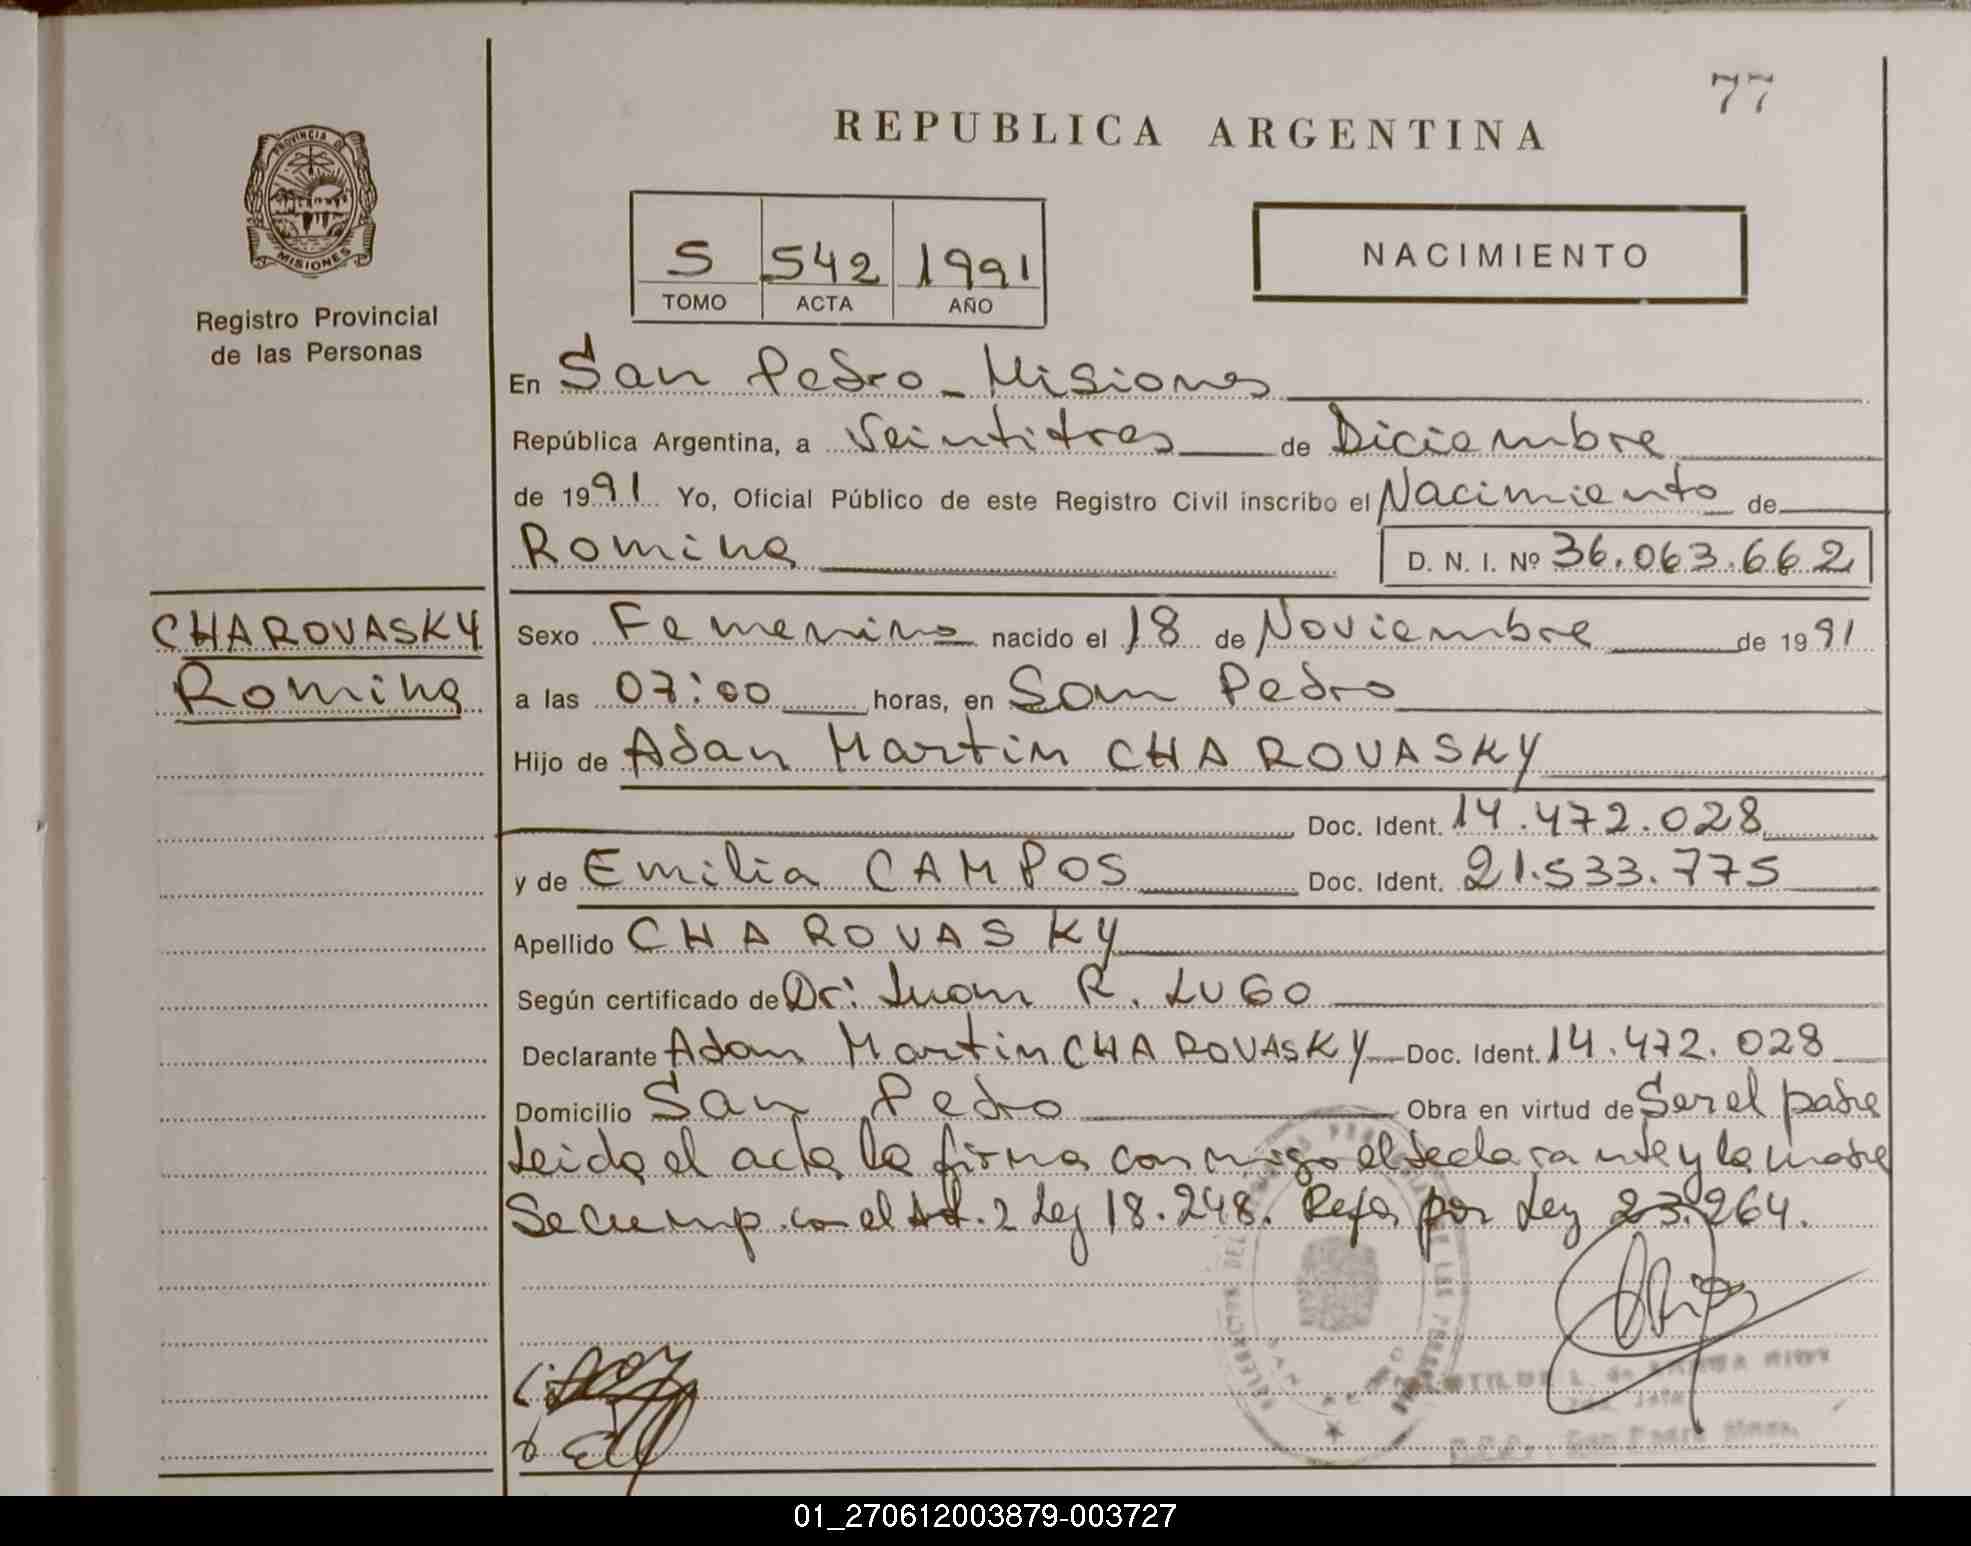 77
REPUBLICA ARGENTINA
PROVINCIA DE
MISIONES
Registro Provincial
de las Personas
S 542 1991
TOMO ACTA AÑO
NACIMIENTO
En San Pedro - Misiones
República Argentina, a Veintitres de Diciembre
de 1991 Yo, Oficial Público de este Registro Civil inscribo el Nacimiento de
Romina D. N. I. Nº 36.063.662
CHAROVASKY
Romina
Sexo Femenino nacido el 18 de Noviembre de 1991
a las 07:00 horas, en San Pedro
Hijo de Adan Martin CHAROVASKY
Doc. Ident. 14.472.028
y de Emilia CAMPOS Doc. Ident. 21.533.775
Apellido CHAROVASKY
Según certificado de Dr: Juan R. LUGO
Declarante Adan Martin CHAROVASKY Doc. Ident. 14.472.028
Domicilio San Pedro Obra en virtud de Ser el padre
Leida el acta la firma conmigo el declarante y la madre
Se cump. con el Art. 2 Ley 18.248. Refor por Ley 23.264.
San Pedro
01_270612003879-003727